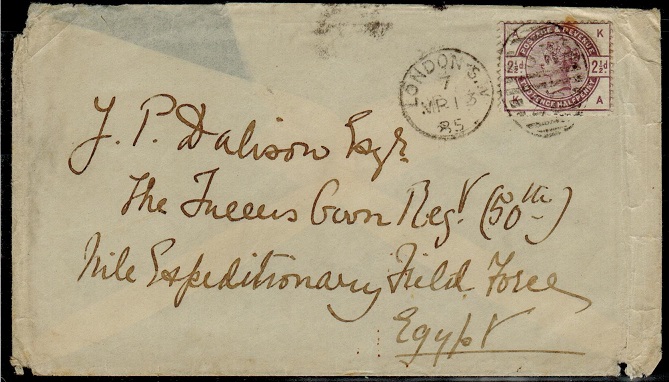 POSTAGE & REVENUE
K
2½d. 2½d.
TWOPENCE HALFPENNY
K A
LONDON S.W
7
MR 13
85
J. P. Dalison Esqre
The Queens Own Regt (50th)
Nile Expeditionary Field Force
Egypt